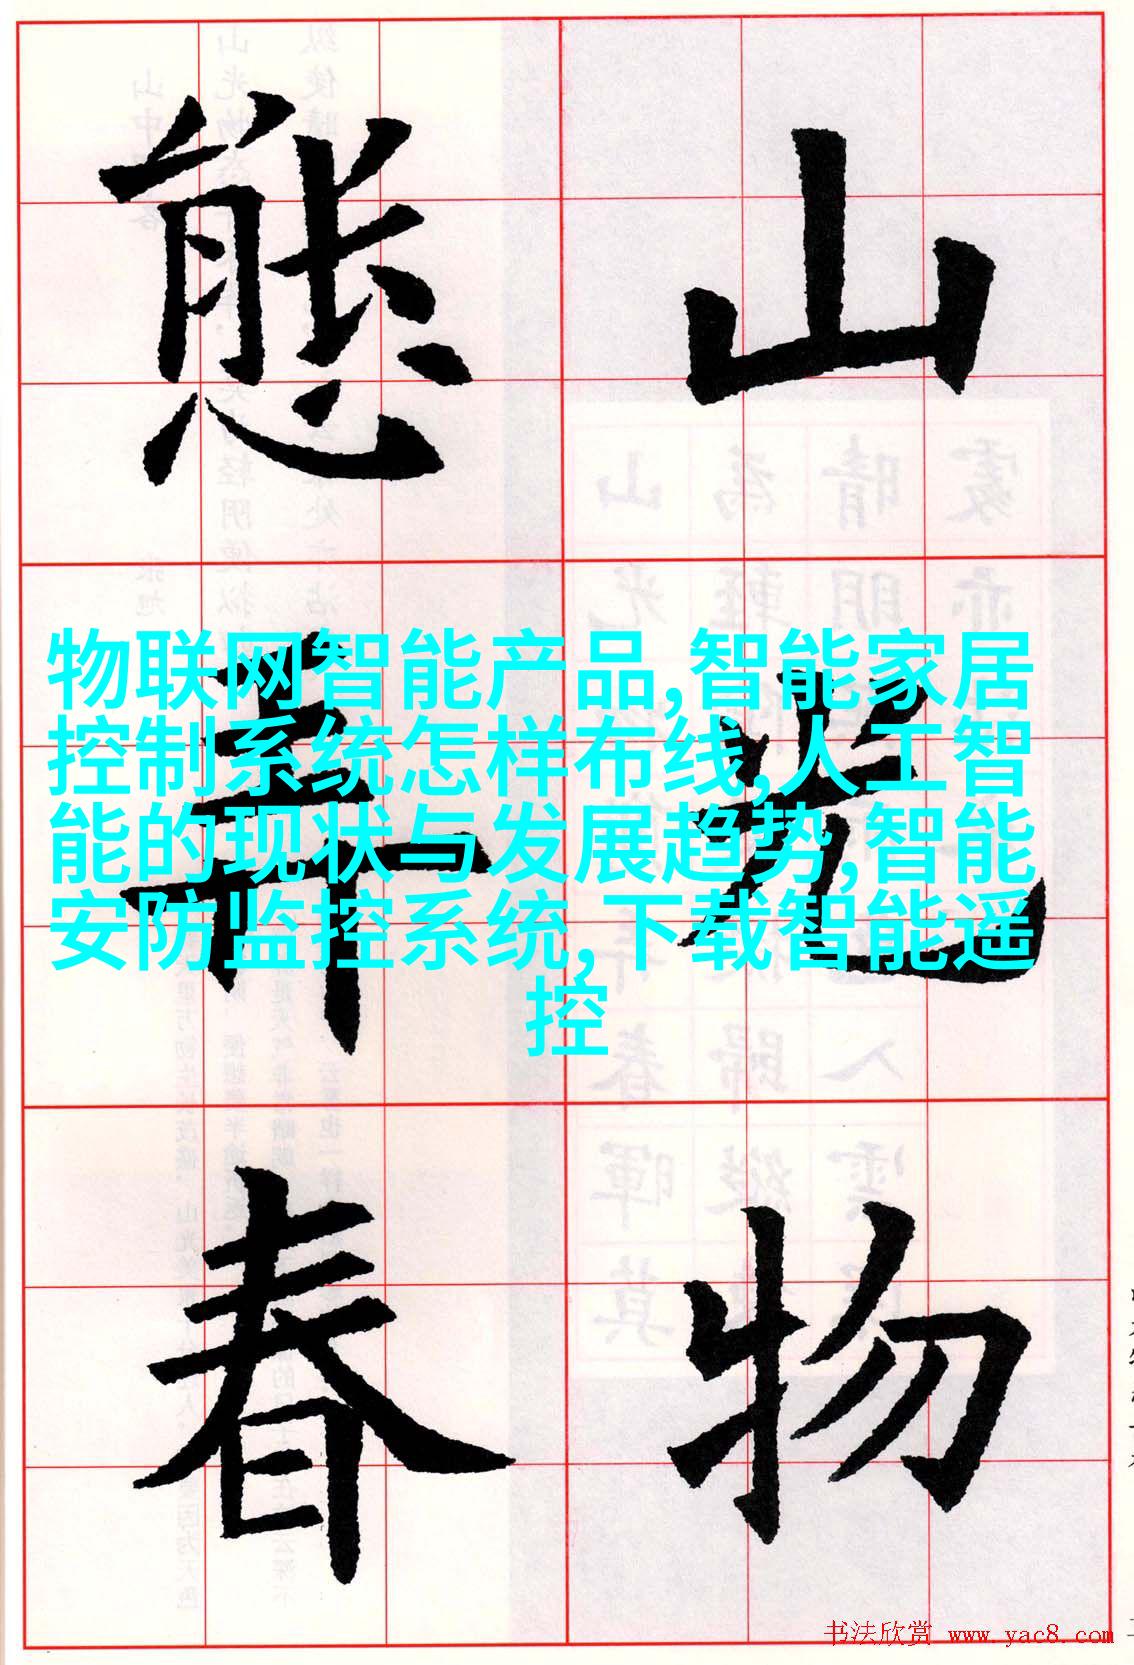 山光物
態弄春
物联网智能产品,智能家居
控制系统怎样布线,人工智
能的现状与发展趋势,智能
安防监控系统,下载智能遥
控
书法欣赏 www.yac8.com